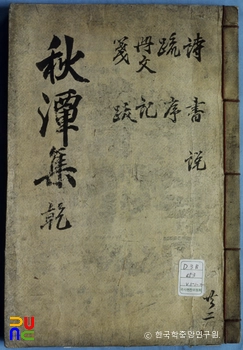 秋潭集 乾
詩 書 說
疏 序
冊文 記
箋 跋
共二
D3B
한국학중앙연구원